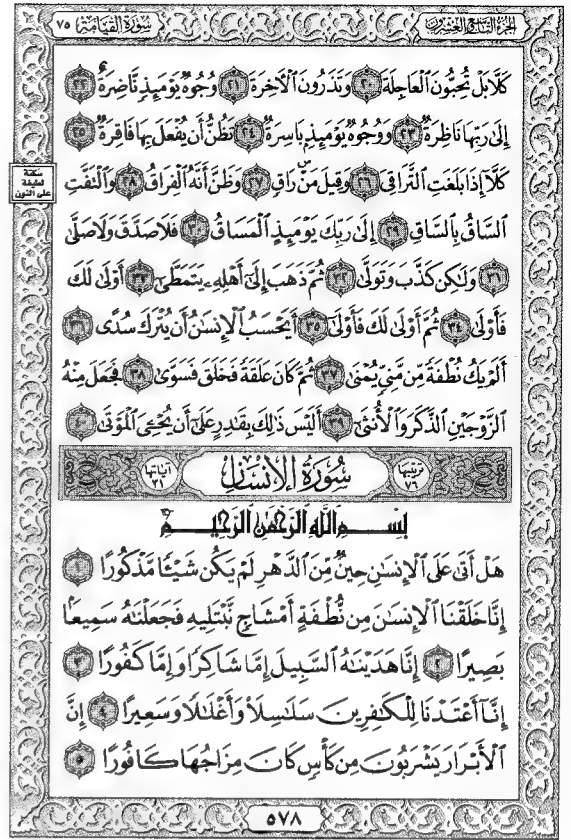 الجزء التاسع والعشرون
سورة القيامة ٧٥
كَلَّا بَلْ تُحِبُّونَ ٱلْعَاجِلَةَ ٢٠ وَتَذَرُونَ ٱلْأَخِرَةَ ٢١ وُجُوهٌ يَوْمَئِذٍ نَّاضِرَةٌ ٢٢
إِلَىٰ رَبِّهَا نَاظِرَةٌ ٢٣ وَوُجُوهٌ يَوْمَئِذٍ بَاسِرَةٌ ٢٤ تَظُنُّ أَن يُفْعَلَ بِهَا فَاقِرَةٌ ٢٥
كَلَّآ إِذَا بَلَغَتِ ٱلتَّرَاقِيَ ٢٦ وَقِيلَ مَنْ ۜ رَاقٍ ٢٧ وَظَنَّ أَنَّهُ ٱلْفِرَاقُ ٢٨ وَٱلْتَفَّتِ
سكتة
لطيفة
على النون
ٱلسَّاقُ بِٱلسَّاقِ ٢٩ إِلَىٰ رَبِّكَ يَوْمَئِذٍ ٱلْمَسَاقُ ٣٠ فَلَا صَدَّقَ وَلَا صَلَّىٰ
٣١ وَلَٰكِن كَذَّبَ وَتَوَلَّىٰ ٣٢ ثُمَّ ذَهَبَ إِلَىٰٓ أَهْلِهِۦ يَتَمَطَّىٰٓ ٣٣ أَوْلَىٰ لَكَ
فَأَوْلَىٰ ٣٤ ثُمَّ أَوْلَىٰ لَكَ فَأَوْلَىٰٓ ٣٥ أَيَحْسَبُ ٱلْإِنسَٰنُ أَن يُتْرَكَ سُدًى ٣٦
أَلَمْ يَكُ نُطْفَةً مِّن مَّنِىٍّ يُمْنَىٰ ٣٧ ثُمَّ كَانَ عَلَقَةً فَخَلَقَ فَسَوَّىٰ ٣٨ فَجَعَلَ مِنْهُ
ٱلزَّوْجَيْنِ ٱلذَّكَرَ وَٱلْأُنثَىٰٓ ٣٩ أَلَيْسَ ذَٰلِكَ بِقَٰدِرٍ عَلَىٰٓ أَن يُحْـِۧىَ ٱلْمَوْتَىٰ ٤٠
ترتيبها ٧٦ سُورَةُ الإِنسَانِ آياتها ٣١
بِسْمِ ٱللَّهِ ٱلرَّحْمَٰنِ ٱلرَّحِيمِ
هَلْ أَتَىٰ عَلَى ٱلْإِنسَٰنِ حِينٌ مِّنَ ٱلدَّهْرِ لَمْ يَكُن شَيْـًٔا مَّذْكُورًا ١
إِنَّا خَلَقْنَا ٱلْإِنسَٰنَ مِن نُّطْفَةٍ أَمْشَاجٍ نَّبْتَلِيهِ فَجَعَلْنَٰهُ سَمِيعًۢا
بَصِيرًا ٢ إِنَّا هَدَيْنَٰهُ ٱلسَّبِيلَ إِمَّا شَاكِرًا وَإِمَّا كَفُورًا ٣
إِنَّآ أَعْتَدْنَا لِلْكَٰفِرِينَ سَلَٰسِلَا۟ وَأَغْلَٰلًا وَسَعِيرًا ٤ إِنَّ
ٱلْأَبْرَارَ يَشْرَبُونَ مِن كَأْسٍ كَانَ مِزَاجُهَا كَافُورًا ٥
٥٧٨